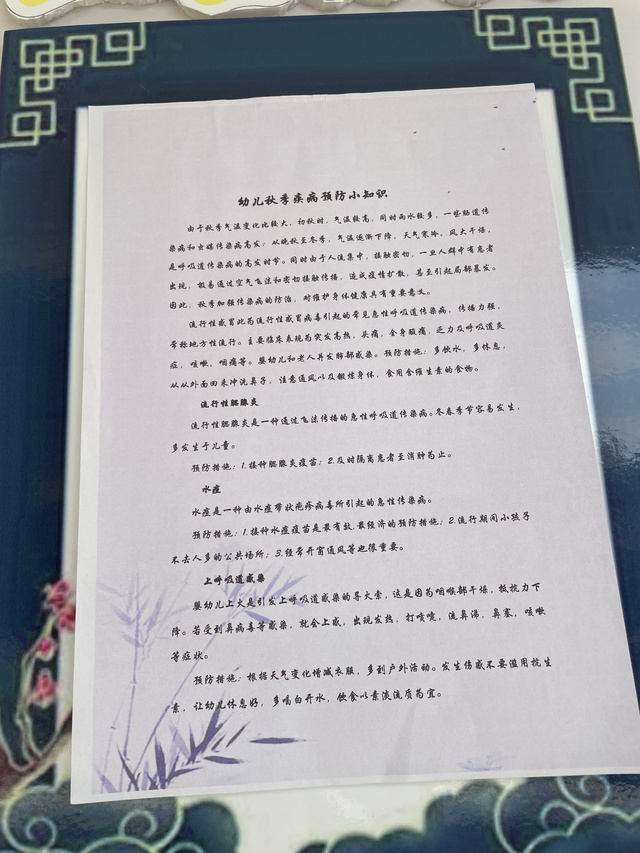 幼儿秋季疾病预防小知识
由于秋季气温变化比较大，初秋时，气温较高，同时雨水较多，一些肠道传
染病和虫媒传染病高发；从晚秋至冬季，气温逐渐下降，天气寒冷，风大干燥，
是呼吸道传染病的高发时节。同时由于人流集中，接触密切，一旦人群中有患者
出现，极易通过空气飞沫和密切接触传播，造成疫情扩散，甚至引起局部暴发。
因此，秋季加强传染病的防治，对维护身体健康具有重要意义。
流行性感冒此为流行性感冒病毒引起的常见急性呼吸道传染病，传播力强，
常称地方性流行。主要临床表现为突发高热，头痛，全身酸痛，乏力及呼吸道炎
症，咳嗽，咽痛等。婴幼儿和老人并发肺部感染。预防措施：多饮水，多休息，
从从外面回来冲洗鼻子，注意通风以及锻炼身体，食用含维生素的食物。
流行性腮腺炎
流行性腮腺炎是一种通过飞沫传播的急性呼吸道传染病。冬春季节容易发生，
多发生于儿童。
预防措施：1.接种腮腺炎疫苗；2.及时隔离患者至消肿为止。
水痘
水痘是一种由水痘带状疱疹病毒所引起的急性传染病。
预防措施：1.接种水痘疫苗是最有效.最经济的预防措施；2.流行期间小孩子
不去人多的公共场所；3.经常开窗通风等也很重要。
上呼吸道感染
婴幼儿上火是引发上呼吸道感染的导火索，这是因为咽喉部干燥，抵抗力下
降。若受到鼻病毒等感染，就会上感，出现发热，打喷嚏，流鼻沸，鼻塞，咳嗽
等症状。
预防措施：根据天气变化增减衣服，多到户外活动。发生伤感不要滥用抗生
素，让幼儿休息好，多喝白开水，饮食以素淡流质为宜。